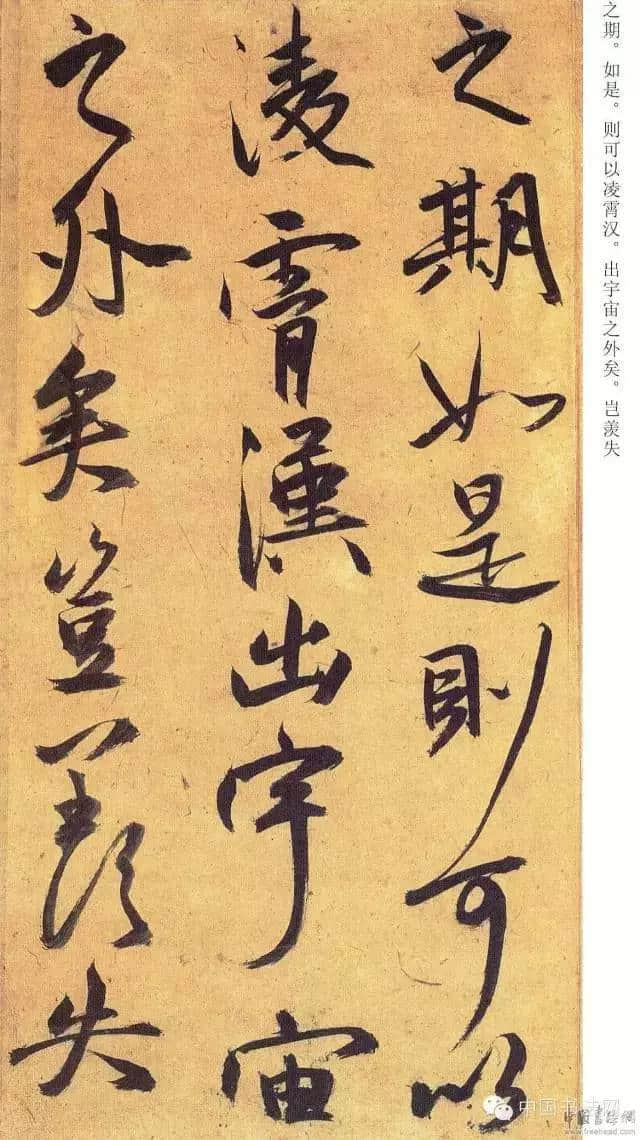 之期。如是。则可以凌霄汉。出宇宙之外矣。岂羡失
之期如是則可以
凌霄漢出宇宙
之外矣豈羨失
中国书法网
中国書法網
www.freehead.com